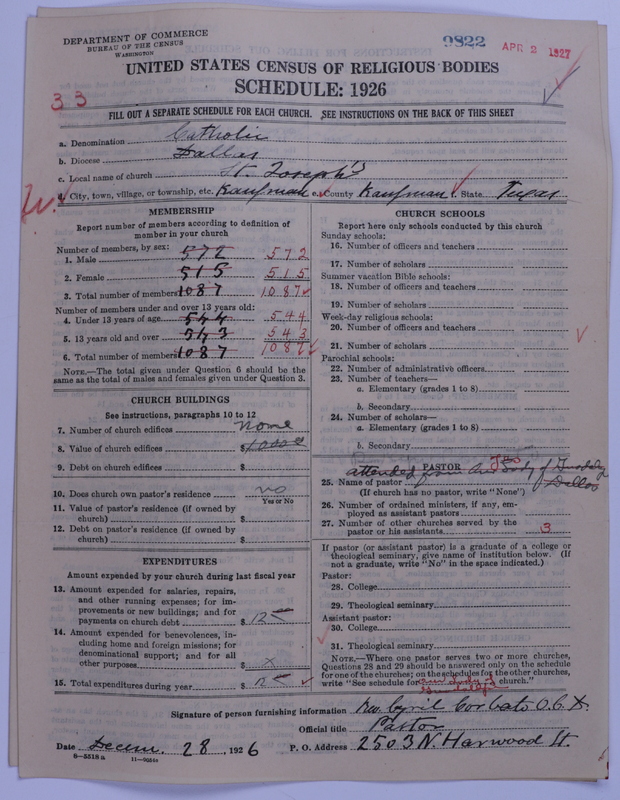 DEPARTMENT OF COMMERCE
BUREAU OF THE CENSUS
WASHINGTON
9822
APR 2 1927
UNITED STATES CENSUS OF RELIGIOUS BODIES
SCHEDULE: 1926
33
FILL OUT A SEPARATE SCHEDULE FOR EACH CHURCH. SEE INSTRUCTIONS ON THE BACK OF THIS SHEET
a. Denomination Catholic
b. Diocese Dallas
c. Local name of church St. Joseph's
d. City, town, village, or township, etc. Kaufman e. County Kaufman f. State Texas
MEMBERSHIP
Report number of members according to definition of
member in your church
Number of members, by sex:
1. Male 572 572
2. Female 515 515
3. Total number of members 1087 1087
Number of members under and over 13 years old:
4. Under 13 years of age 544 544
5. 13 years old and over 543 543
6. Total number of members 1087 1087
NOTE.—The total given under Question 6 should be the
same as the total of males and females given under Question 3.
CHURCH BUILDINGS
See instructions, paragraphs 10 to 12
7. Number of church edifices None
8. Value of church edifices $
9. Debt on church edifices $
10. Does church own pastor's residence no
Yes or No
11. Value of pastor's residence (if owned by
church) $
12. Debt on pastor's residence (if owned by
church) $
EXPENDITURES
Amount expended by your church during last fiscal year
13. Amount expended for salaries, repairs,
and other running expenses; for im-
provements or new buildings; and for
payments on church debt $
14. Amount expended for benevolences, in-
cluding home and foreign missions; for
denominational support; and for all
other purposes x
15. Total expenditures during year $
CHURCH SCHOOLS
Report here only schools conducted by this church
Sunday schools:
16. Number of officers and teachers
17. Number of scholars
Summer vacation Bible schools:
18. Number of officers and teachers
19. Number of scholars
Week-day religious schools:
20. Number of officers and teachers
21. Number of scholars
Parochial schools:
22. Number of administrative officers
23. Number of teachers—
a. Elementary (grades 1 to 8)
b. Secondary
24. Number of scholars—
a. Elementary (grades 1 to 8)
b. Secondary
PASTOR
attended from Our Lady of
25. Name of pastor Dallas
(If church has no pastor, write "None")
26. Number of ordained ministers, if any, em-
ployed as assistant pastors
27. Number of other churches served by the
pastor or his assistants 3
If pastor (or assistant pastor) is a graduate of a college or
theological seminary, give name of institution below. (If
not a graduate, write "No" in the space indicated.)
Pastor:
28. College
29. Theological seminary
Assistant pastor:
30. College
31. Theological seminary
NOTE.—Where one pastor serves two or more churches,
Questions 28 and 29 should be answered only on the schedule
for one of the churches; on the schedules for the other churches,
write "See schedule for Our Lady of church."
Signature of person furnishing information Rev. Cyril Corbato O.C.D.
Official title Pastor
Date Decem. 28, 1926 P. O. Address 2503 N. Harwood St.
8—5518 a 11—9056a